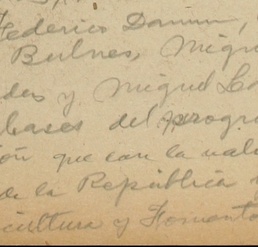 Federico
Bulnes, Migu
y Miguel
bases del progra
ión que con la vali
de la República
cultura y Fomento